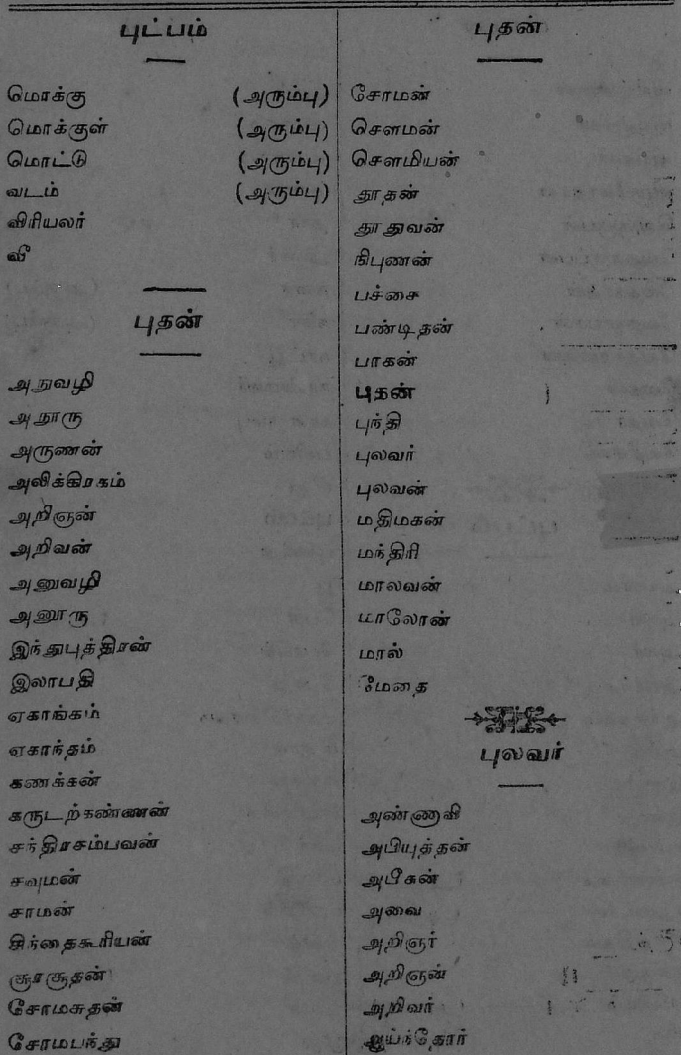 புட்பம்
மொக்கு (அரும்பு)
மொக்குள் (அரும்பு)
மொட்டு (அரும்பு)
வடம் (அரும்பு)
விரியலர்
வீ
புதன்
அநுவழி
அநூரு
அருணன்
அலிக்கிரகம்
அறிஞன்
அறிவன்
அனுவழி
அனூரு
இந்துபுத்திரன்
இலாபதி
ஏகாங்கம்
ஏகாந்தம்
கணக்கன்
கருடற்கண்ணன்
சந்திரசம்பவன்
சவுமன்
சாமன்
சிந்தைகூரியன்
சூரசூதன்
சோமசுதன்
சோமபந்து
புதன்
சோமன்
சௌமன்
சௌமியன்
தூதன்
தூதுவன்
நிபுணன்
பச்சை
பண்டிதன்
பாகன்
புகன்
புந்தி
புலவர்
புலவன்
மதிமகன்
மந்திரி
மாலவன்
மாலோன்
மால்
மேதை
புலவர்
அண்ணாவி
அபியுத்தன்
அபீசுன்
அவை
அறிஞர்
அறிஞன்
அறிவர்
ஆய்ந்தோர்